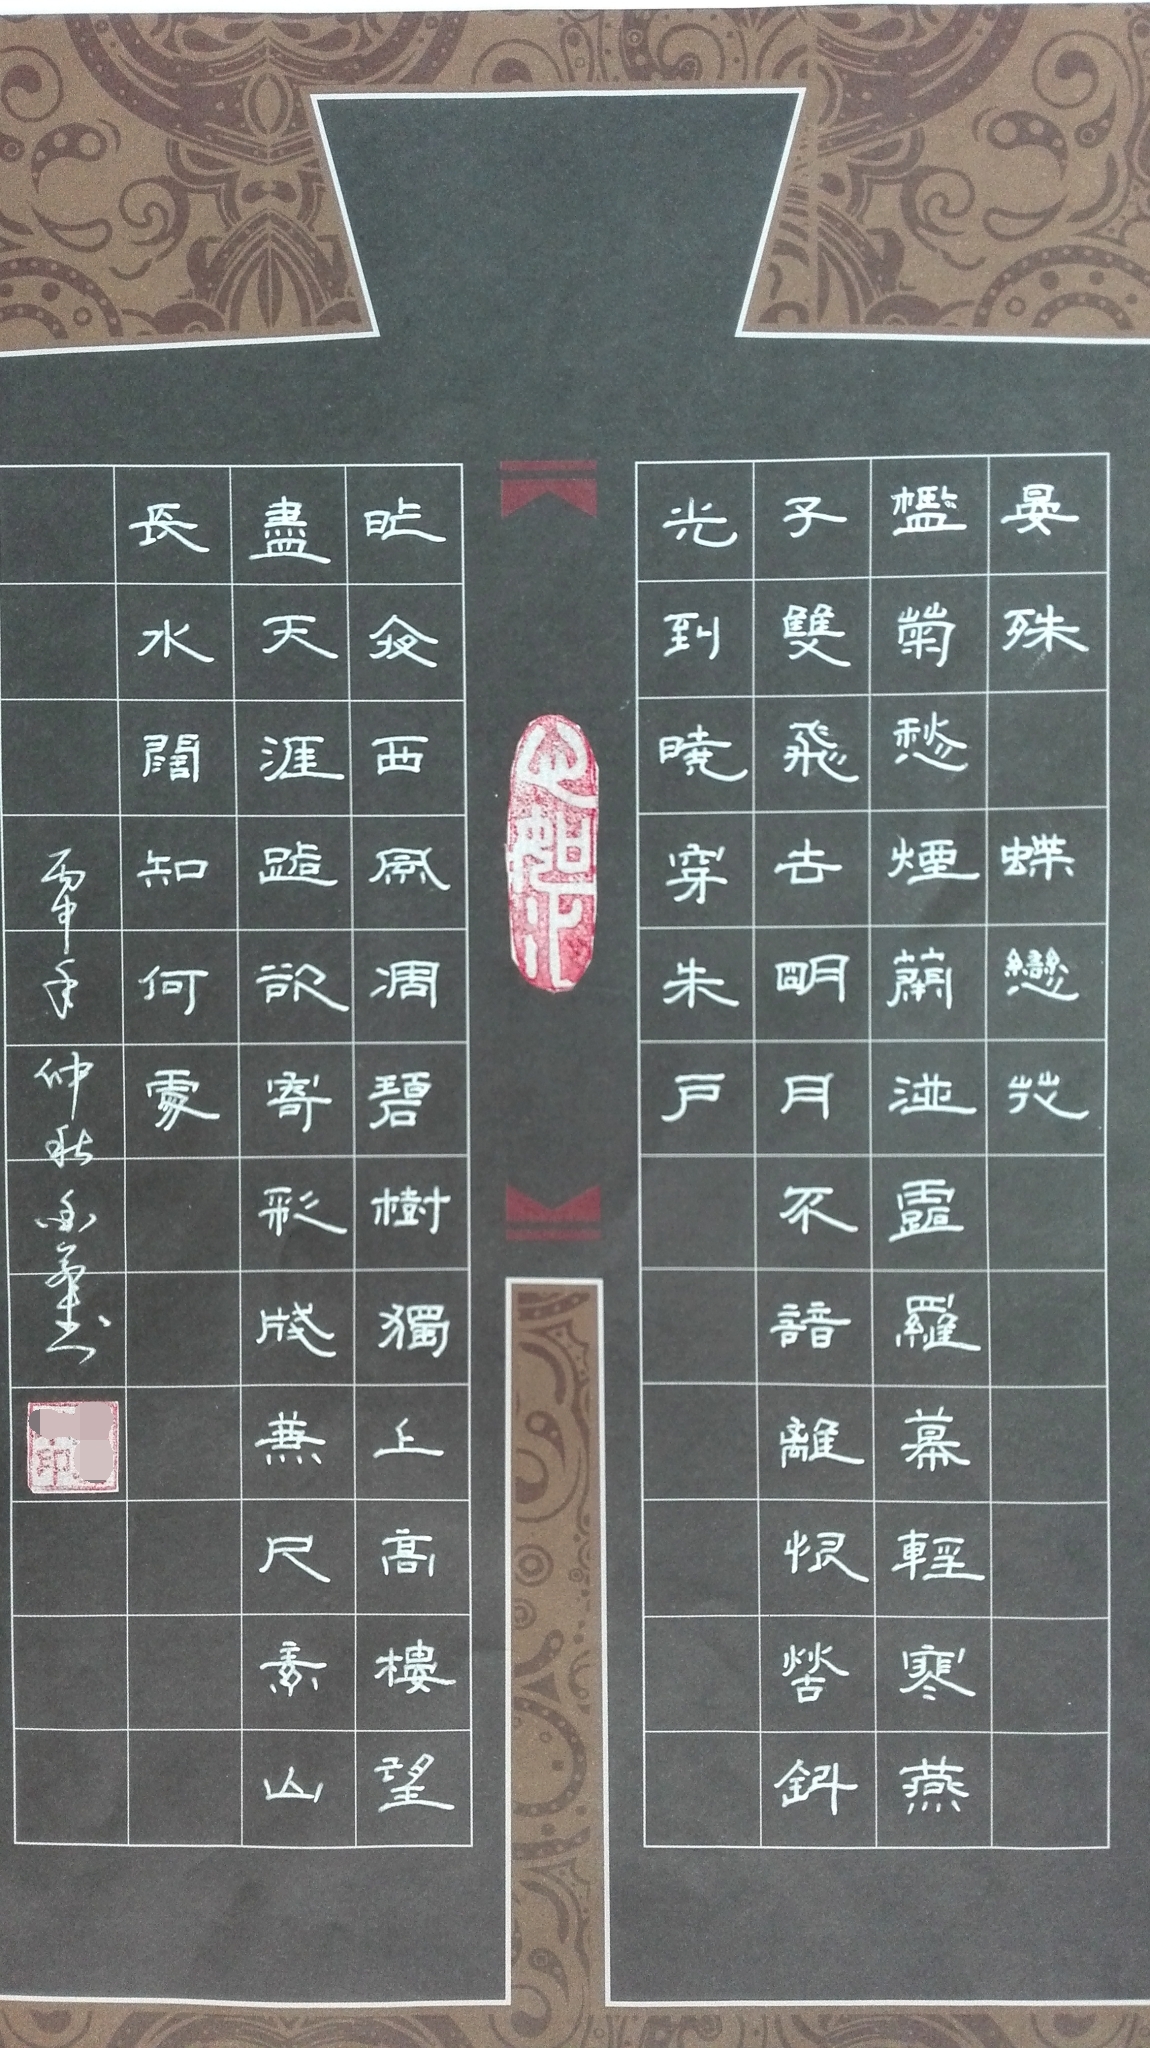 晏殊 蝶戀花
檻菊愁煙蘭泣露羅幕輕寒燕
子雙飛去明月不諳離恨苦斜
光到曉穿朱戶
昨夜西風凋碧樹獨上高樓望
盡天涯路欲寄彩牋兼尺素山
長水闊知何處
仲秋
印